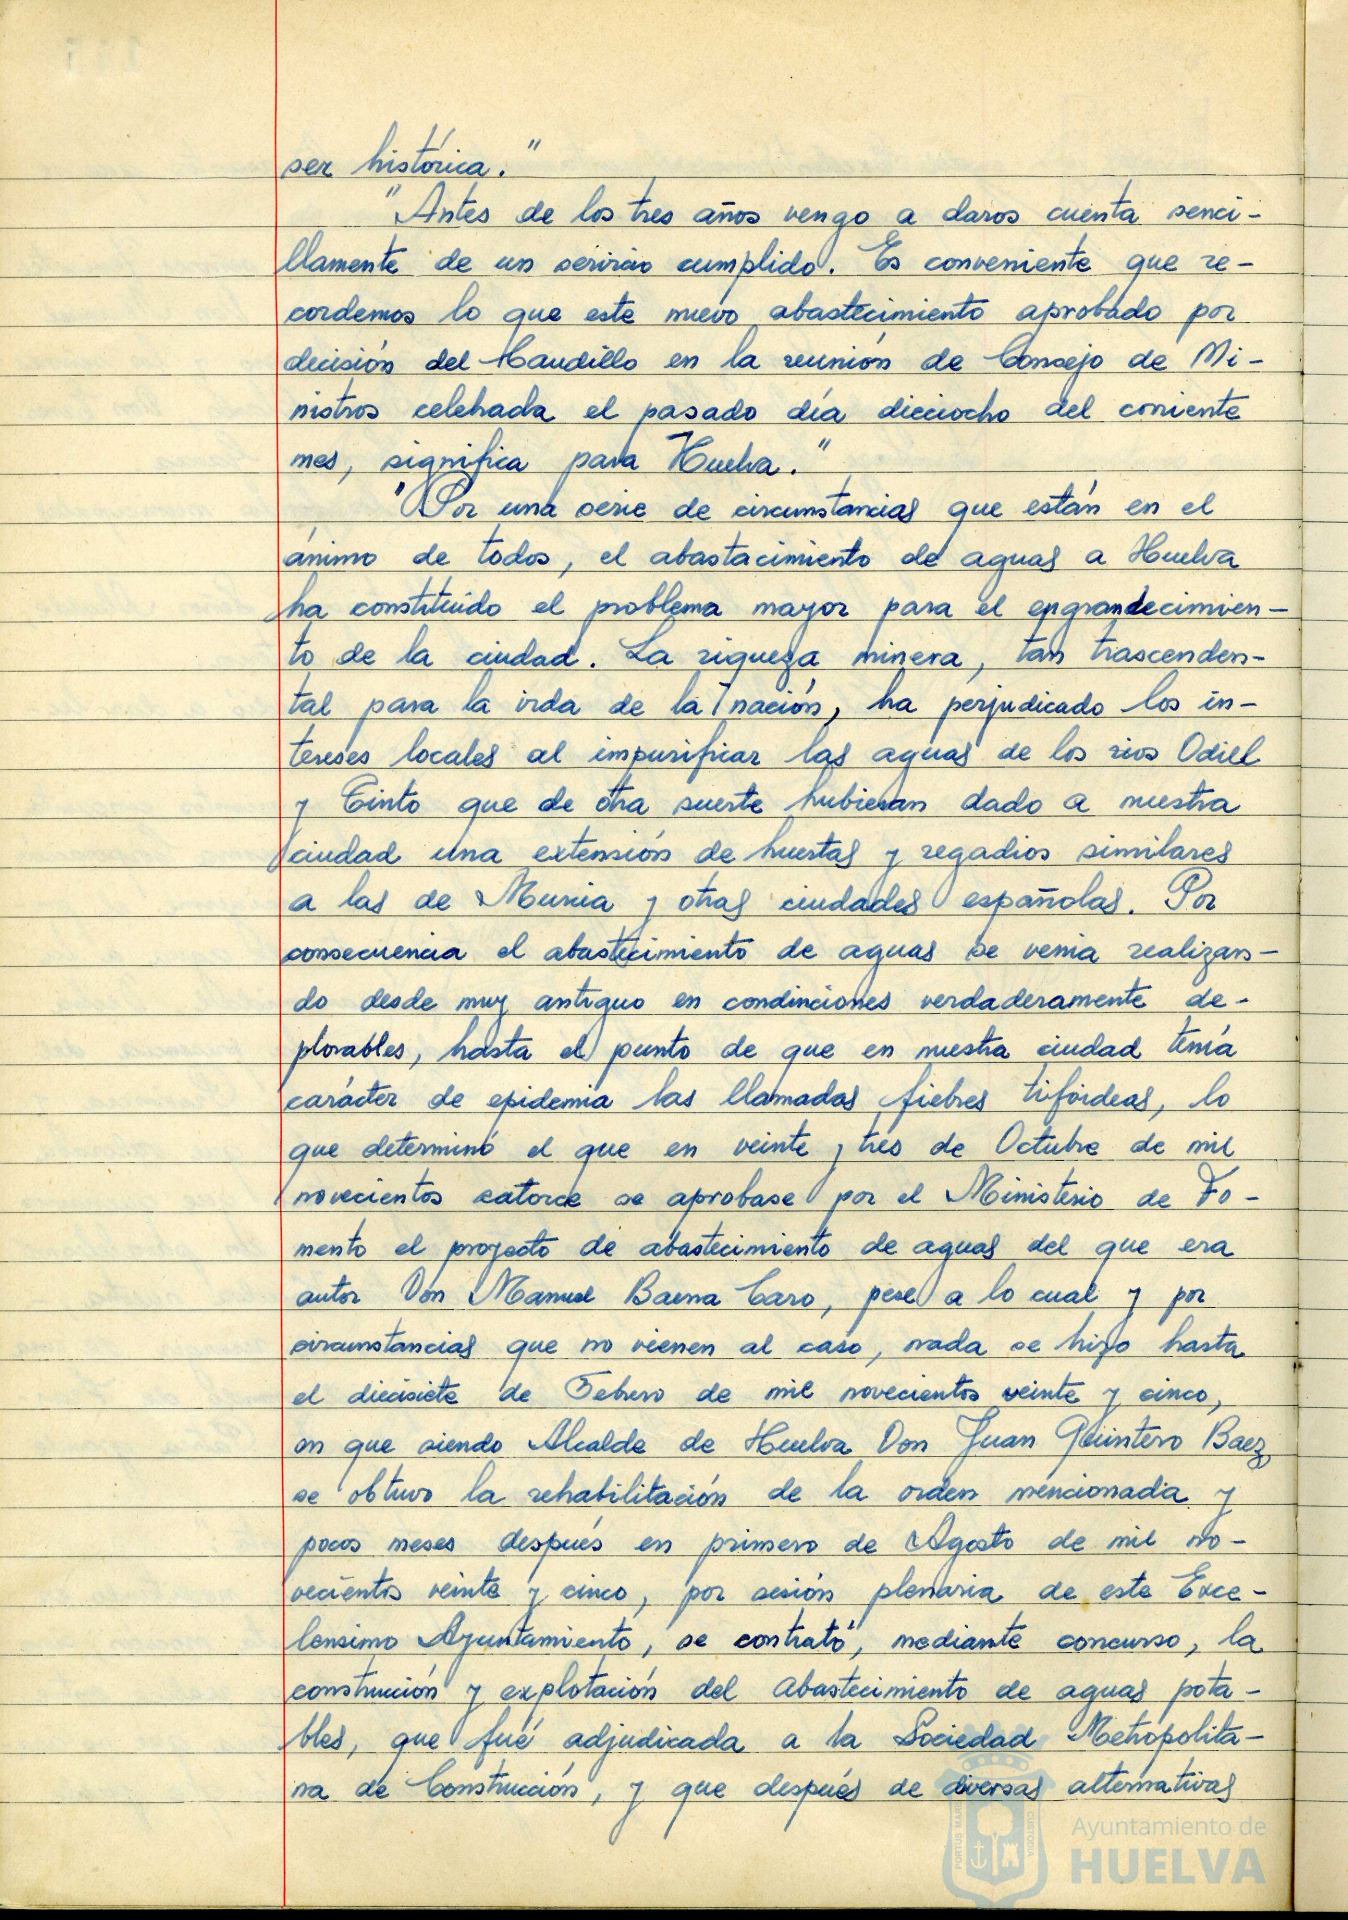 ser histórica."
"Antes de los tres años vengo a daros cuenta senci-
llamente de un servicio cumplido. Es conveniente que re-
cordemos lo que este nuevo abastecimiento aprobado por
decisión del Caudillo en la reunión de Consejo de Mi-
nistros celebrada el pasado día dieciocho del corriente
mes, significa para Huelva."
"Por una serie de circunstancias que están en el
ánimo de todos, el abastacimiento de aguas a Huelva
ha constituido el problema mayor para el engrandecimien-
to de la ciudad. La riqueza minera, tan trascenden-
tal para la vida de la nación, ha perjudicado los in-
tereses locales al impurificar las aguas de los rios Odiel
y Tinto que de otra suerte hubieran dado a nuestra
ciudad una extensión de huertas y regadios similares
a las de Murcia y otras ciudades españolas. Por
consecuencia el abastecimiento de aguas se venia realizan-
do desde muy antiguo en condinciones verdaderamente de-
plorables, hasta el punto de que en nuestra ciudad tenía
carácter de epidemia las llamadas fiebres tifoideas, lo
que determinó el que en veinte y tres de Octubre de mil
novecientos catorce se aprobase por el Ministerio de Fo-
mento el proyecto de abastecimiento de aguas del que era
autor Don Manuel Baena Caro, pese a lo cual y por
circunstancias que no vienen al caso, nada se hizo hasta
el diecisiete de Febrero de mil novecientos veinte y cinco,
en que siendo Alcalde de Huelva Don Juan Quintero Baez
se obtuvo la rehabilitación de la orden mencionada y
pocos meses después en primero de Agosto de mil no-
vecientos veinte y cinco, por sesión plenaria de este Exce-
lensimo Ayuntamiento, se contrató, mediante concurso, la
construcción y explotación del abastecimiento de aguas pota-
bles, que fué adjudicada a la Sociedad Metropolita-
na de Construcción, y que después de diversas alternativas
PORTUS MARIS
CUSTODIA
Ayuntamiento de
HUELVA